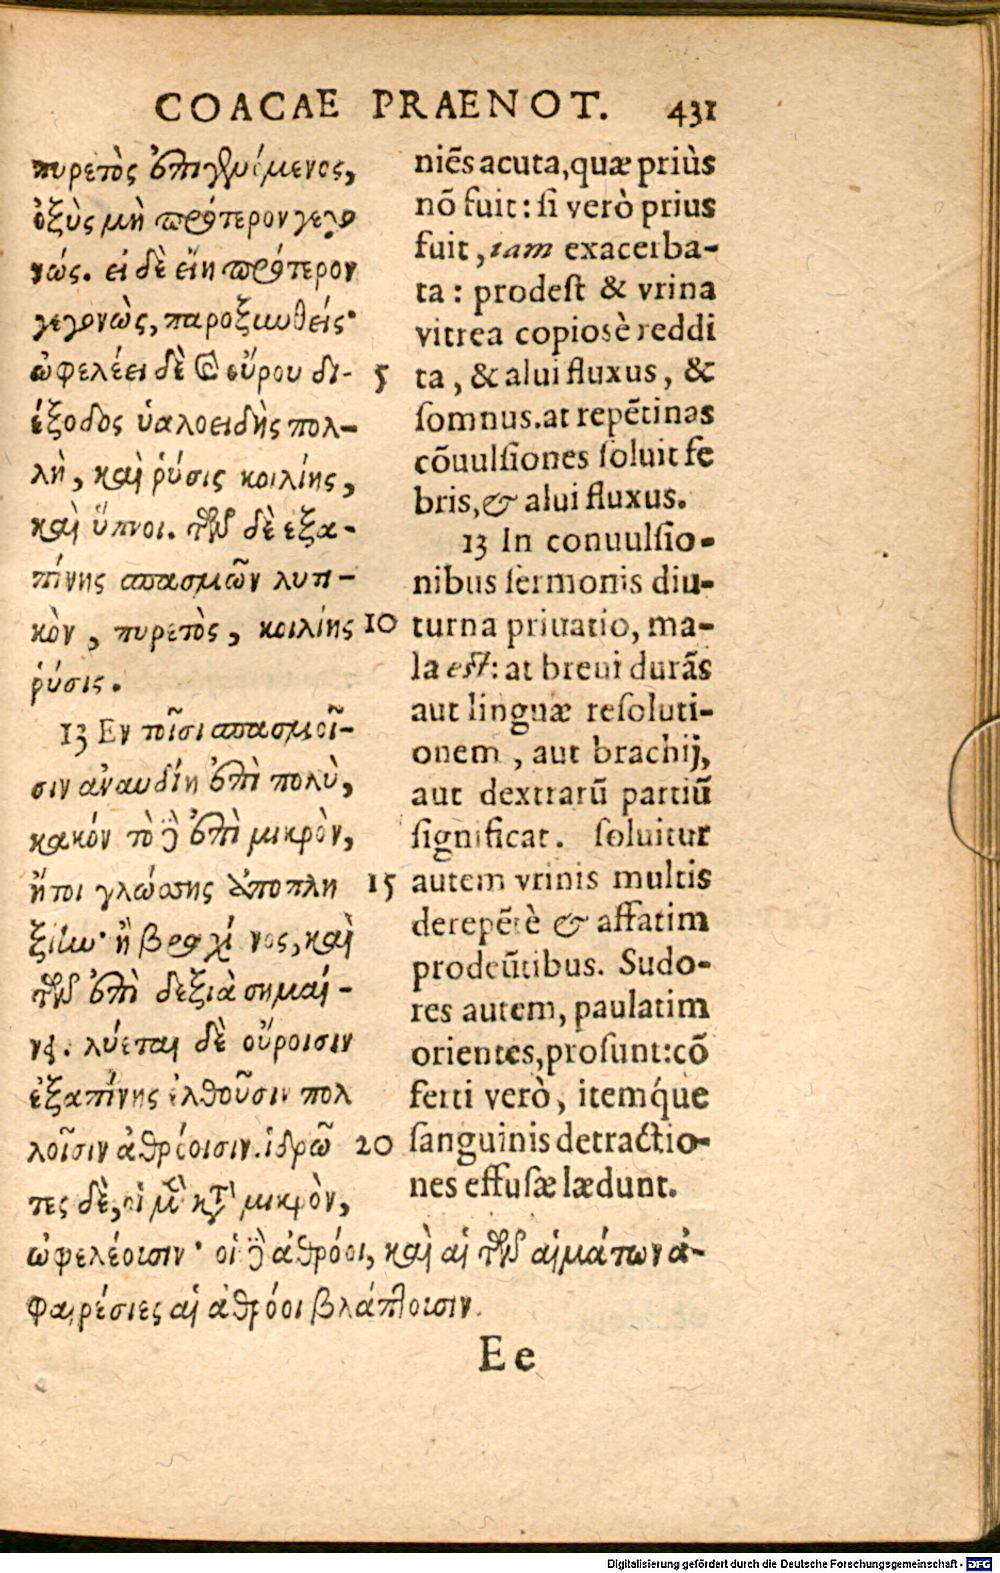 COACAE PRAENOT. 431
πυρετὸς ἐπιγενόμενος,
ὀξὺς μὴ πρότερον γεγο
νώς. εἰ δὲ εἴη πρότερον
γεγονὼς, παροξυνθείς·
ὠφελέει δὲ καὶ οὔρου δι-
έξοδος ὑαλοειδὴς πολ-
λὴ, καὶ ῥύσις κοιλίης,
καὶ ὕπνοι. τῶν δὲ ἐξα-
πίνης σπασμῶν λυτι-
κὸν, πυρετὸς, κοιλίης
ῥύσις.
13 Εν τοῖσι σπασμοῖ-
σιν ἀναυδίη ἐπὶ πολὺ,
κακόν τὸ δὲ ἐπὶ μικρὸν,
ἤτοι γλώσσης ἀποπλη
ξίην· ἢ βραχίονος, καὶ
τῶν ἐπὶ δεξιὰ σημαί-
νει. λύεται δὲ οὔροισιν
ἐξαπίνης ἐλθοῦσιν πολ
λοῖσιν ἀθρόοισιν. ἱδρῶ
τες δὲ, οἱ μὲν κατὰ μικρὸν,
ὠφελέοισιν· οἱ δὲ ἀθρόοι, καὶ αἱ τῶν αἱμάτων ἀ-
φαιρέσιες αἱ ἀθρόοι βλάπτοισιν.
5
10
15
20
niẽs acuta, quæ priùs
nõ fuit: si verò prius
fuit, iam exacerba-
ta: prodest & vrina
vitrea copiosè reddi
ta, & alui fluxus, &
somnus. at repẽtinas
cõuulsiones soluit fe
bris, & alui fluxus.
13 In conuulsio-
nibus sermonis diu-
turna priuatio, ma-
la est: at breui durãs
aut linguæ resoluti-
onem, aut brachij,
aut dextrarũ partiũ
significat. soluitur
autem vrinis multis
derepẽtè & affatim
prodeũtibus. Sudo-
res autem, paulatim
orientes, prosunt: cõ
ferti verò, itemq́ue
sanguinis detractio-
nes effusæ lædunt.
Ee
Digitalisierung gefördert durch die Deutsche Forschungsgemeinschaft - DFG